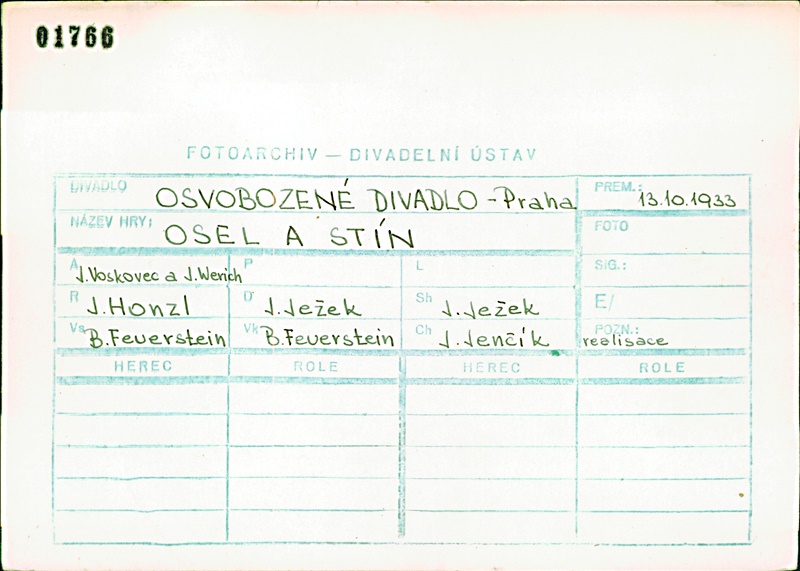 01766
FOTOARCHIV — DIVADELNÍ ÚSTAV
DIVADLO OSVOBOZENÉ DIVADLO - Praha PREM.: 13.10.1933
NÁZEV HRY: OSEL A STÍN FOTO
A J. Voskovec a J. Werich P L SIG.:
R J. Honzl D J. Ježek Sh J. Ježek E/
Vs B. Feuerstein Vk B. Feuerstein Ch J. Jenčík POZN.: realisace
HEREC ROLE HEREC ROLE